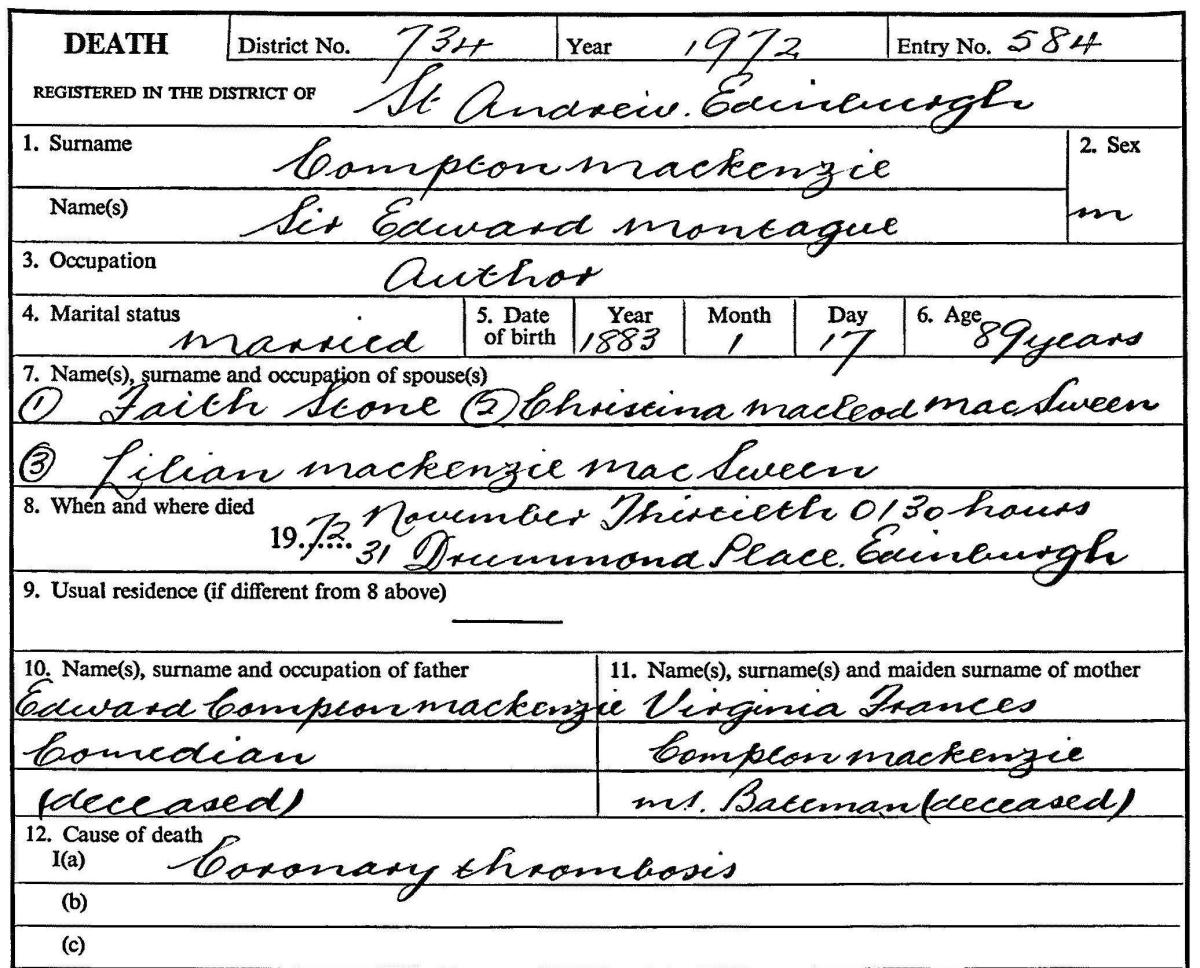 DEATH District No. 734 Year 1972 Entry No. 584
REGISTERED IN THE DISTRICT OF St Andrew. Edinburgh
1. Surname Compton Mackenzie 2. Sex
Name(s) Sir Edward Montague M
3. Occupation Author
4. Marital status Married 5. Date of birth Year 1883 Month 1 Day 17 6. Age 89 years
7. Name(s), surname and occupation of spouse(s)
① Faith Stone ② Christina MacLeod MacSween
③ Lilian Mackenzie MacSween
8. When and where died 1972 November Thirtieth 0130 hours
31 Drummond Place. Edinburgh
9. Usual residence (if different from 8 above) —
10. Name(s), surname and occupation of father 11. Name(s), surname(s) and maiden surname of mother
Edward Compton Mackenzie Virginia Frances
Comedian Compton Mackenzie
(deceased) m.s. Bateman (deceased)
12. Cause of death
I(a) Coronary thrombosis
(b)
(c)